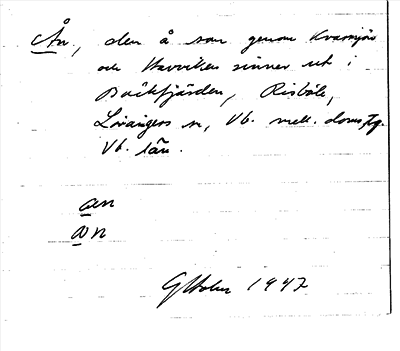 Ån, den å som genom Kvarnsjön
och Havviken rinner ut i
Bäckfjärden, Risböle,
Lövångers sn, Vb. mell. doms. tg.
Vb. län.
aen
on
G Holm 1947